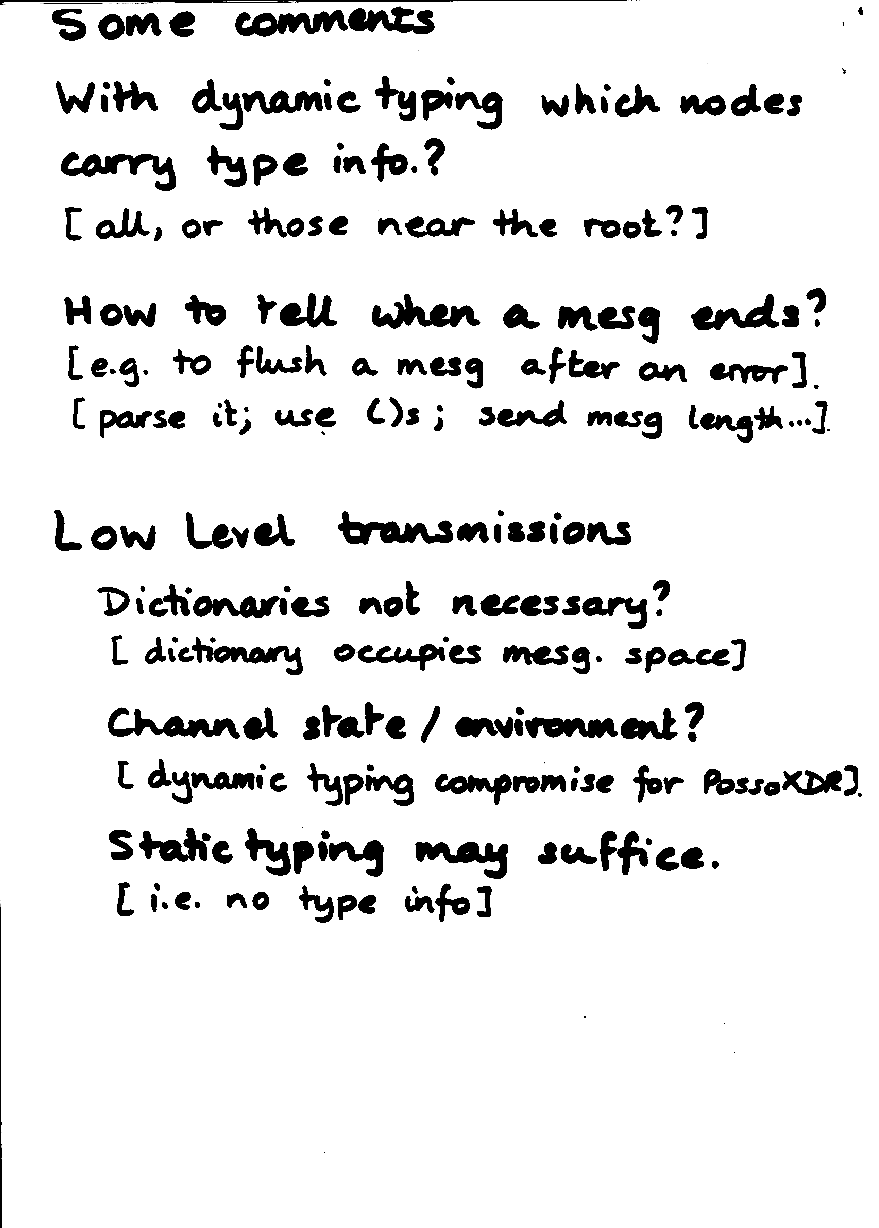 Some comments
With dynamic typing which nodes
carry type info.?
[all, or those near the root?]
How to tell when a mesg ends?
[e.g. to flush a mesg after an error].
[parse it; use ()s; send mesg length...].
Low level transmissions
Dictionaries not necessary?
[dictionary occupies mesg. space]
Channel state / environment?
[dynamic typing compromise for PossoXDR].
Static typing may suffice.
[i.e. no type info]